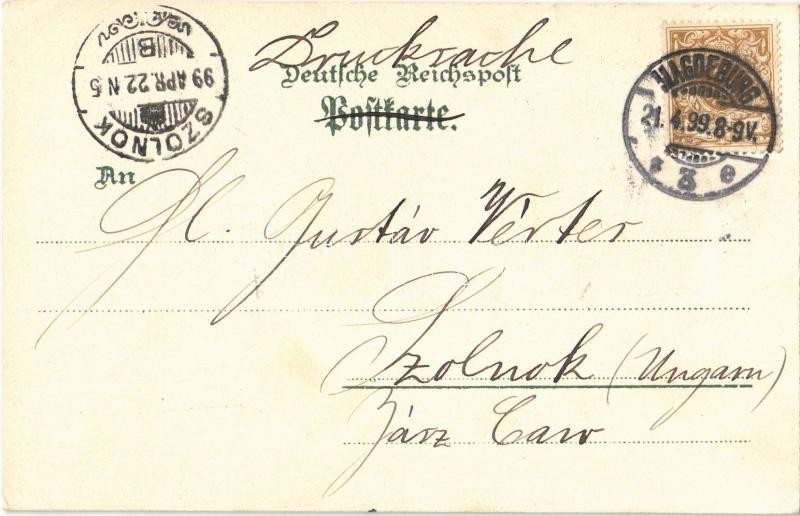 Drucksache
Deutsche Reichspost
Postkarte.
SZOLNOK
99 APR. 22 N 5
B
MAGDEBURG
21. 4. 99. 8-9V.
* 3 e
An
Gustáv Vérter
Szolnok (Ungarn)